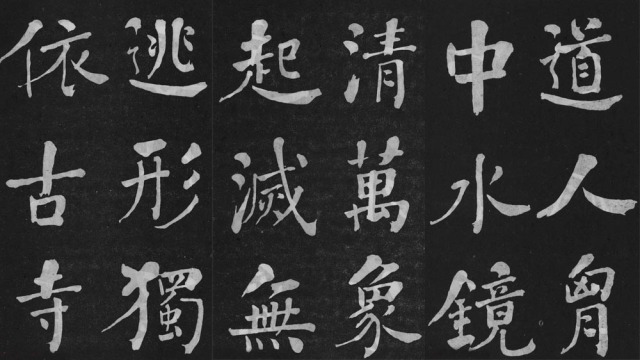 道人胷
中水鏡
清萬象
起滅無
逃形獨
依古寺